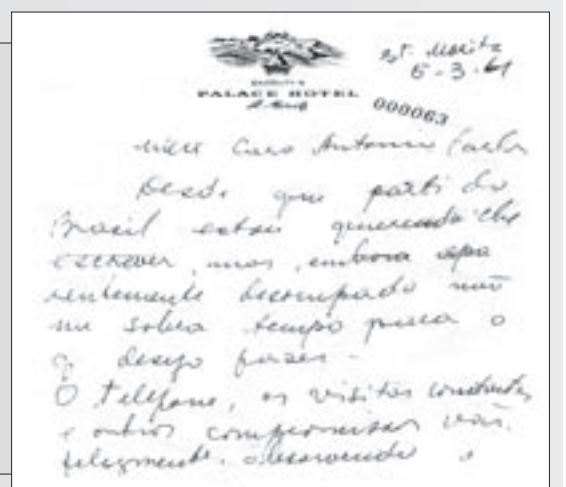 St. Moritz
5-3-61
PALACE HOTEL
St. Moritz
000063
meu caro Antonio Carlos
Desde que parti do
Brasil estou querendo lhe
escrever, mas, embora apa
rentemente desocupado não
me sobra tempo para o
q desejo fazer -
O telefone, as visitas constantes
e outros compromissos vão,
felizmente, absorvendo o